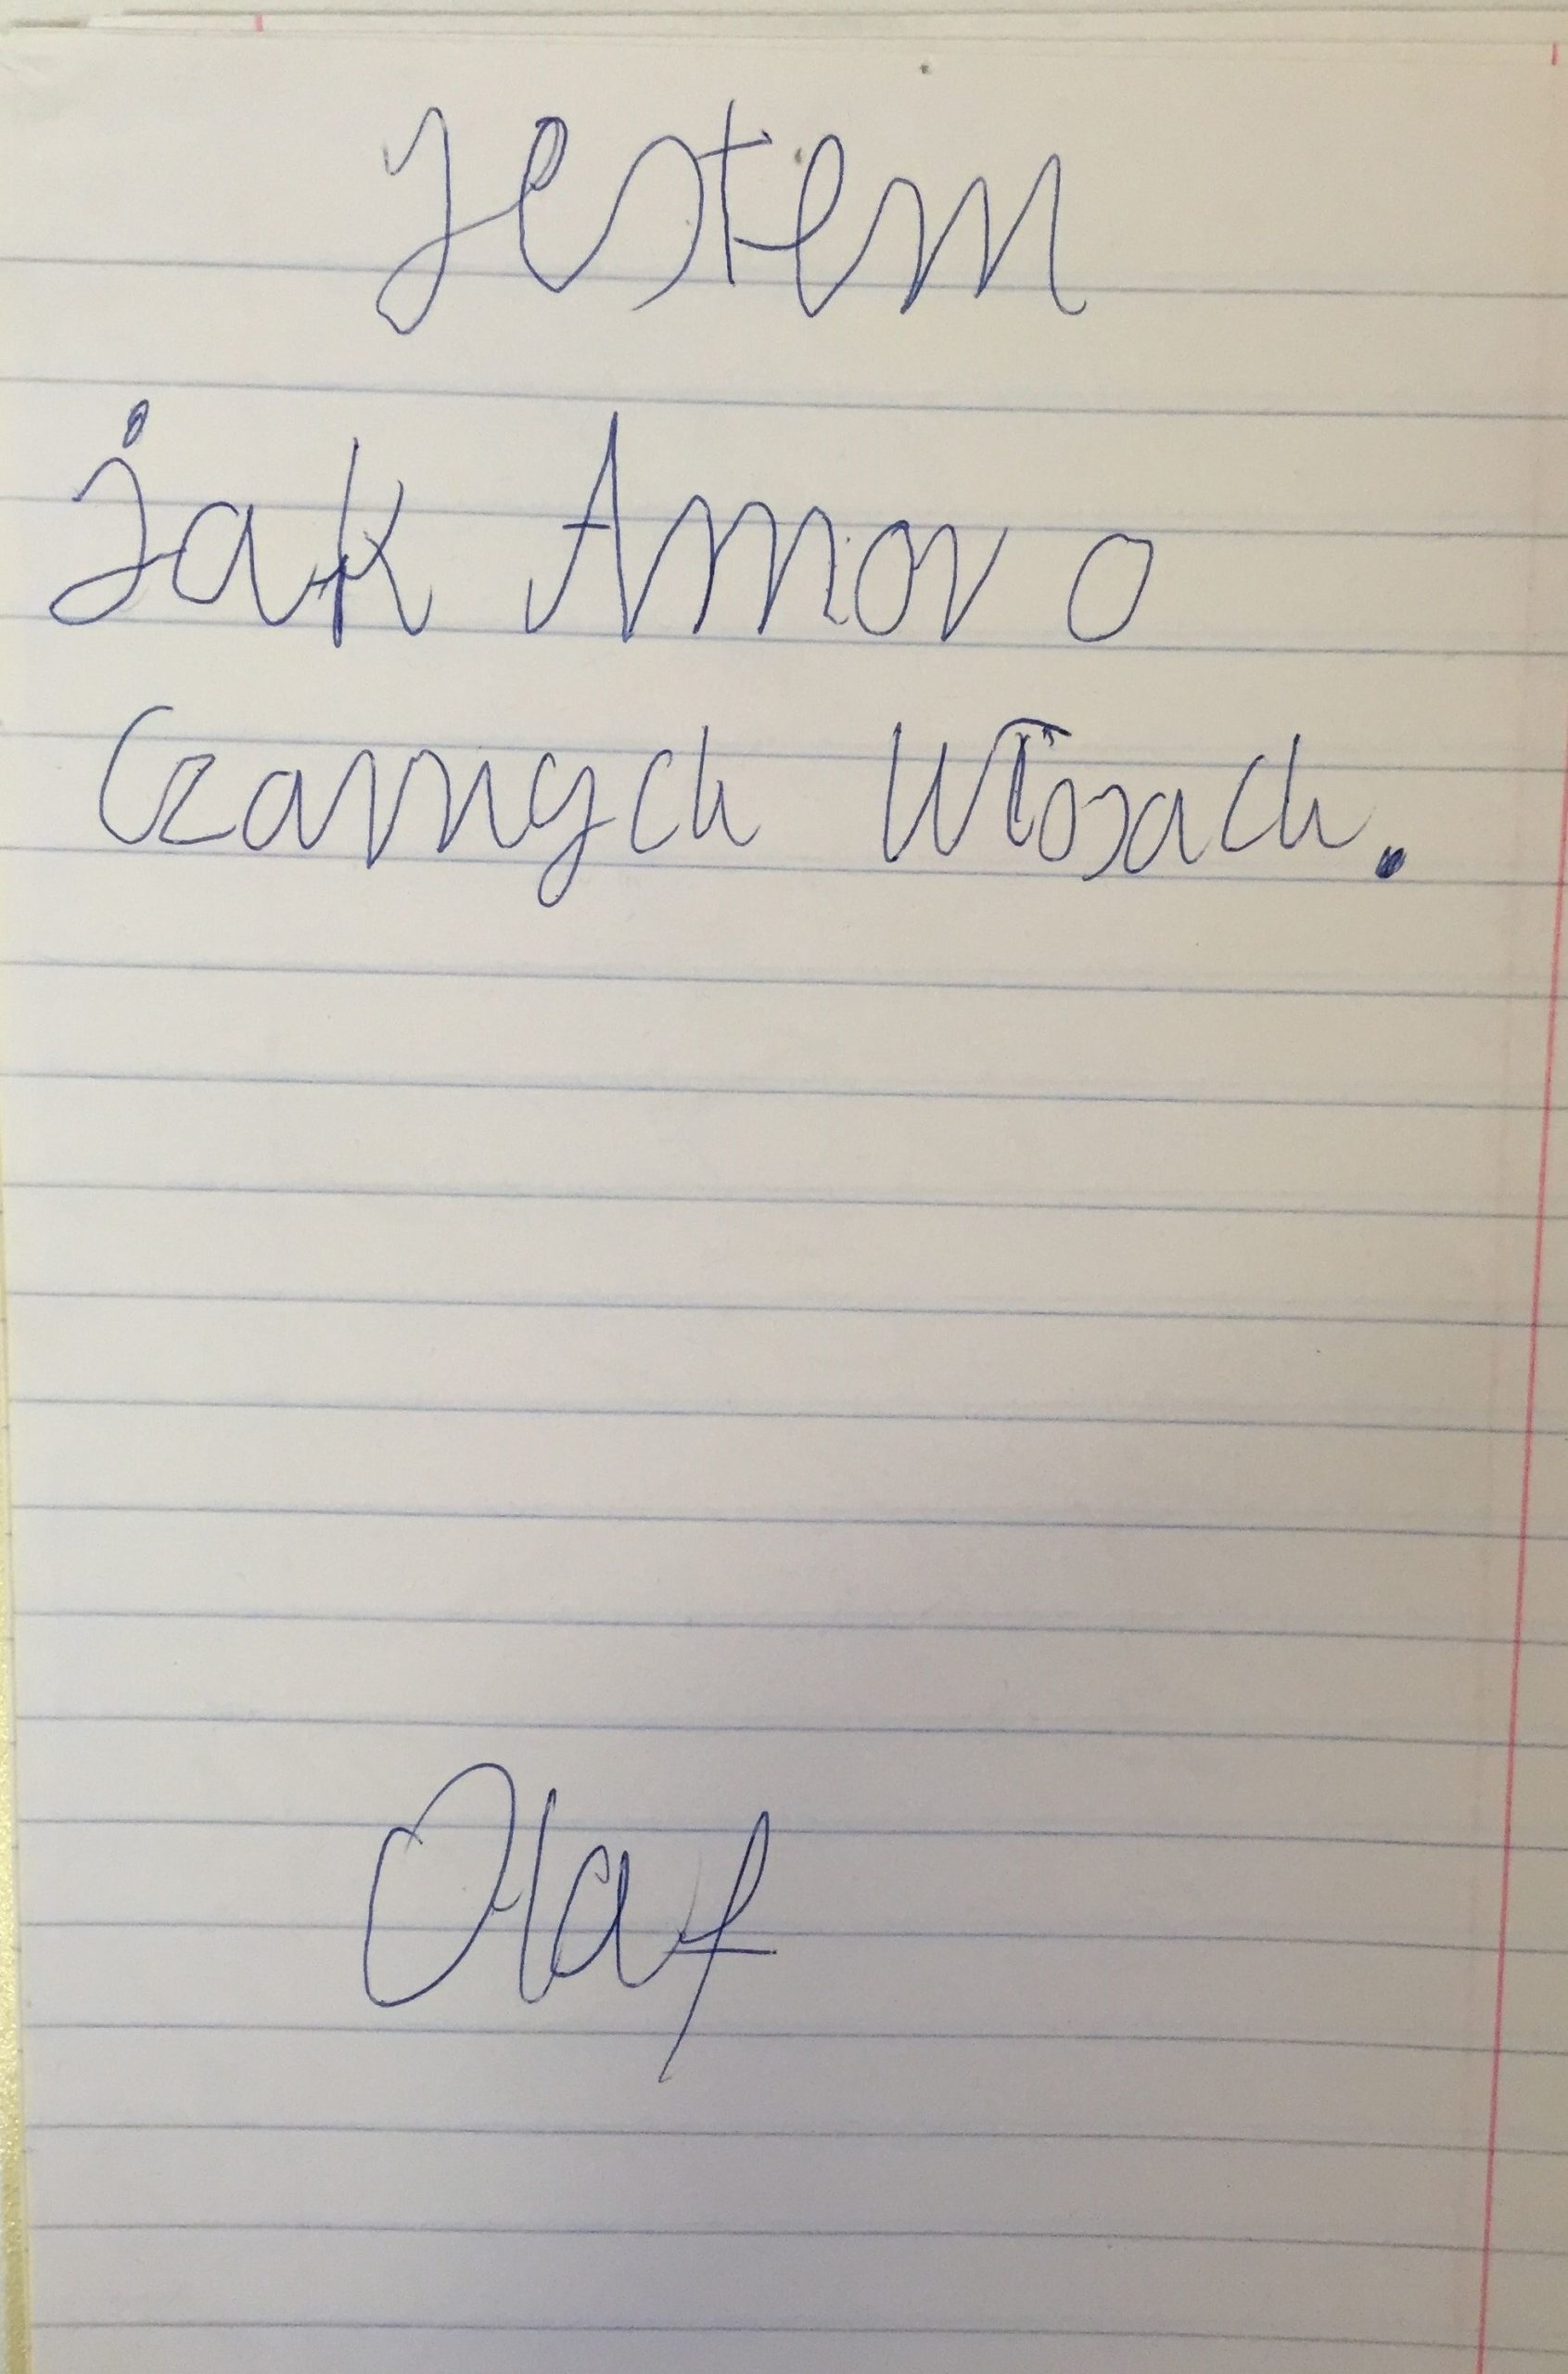 Jestem
jak Amor o
czarnych włosach.
Olaf